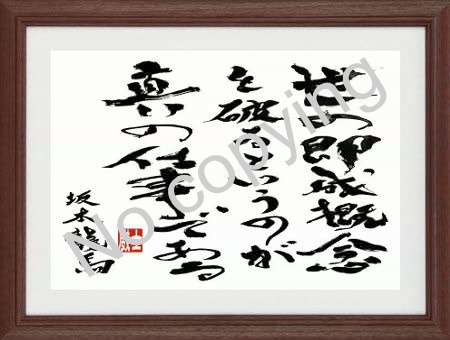 世の既成概念
を破るというのが
真の仕事である
坂本龍馬
No copying